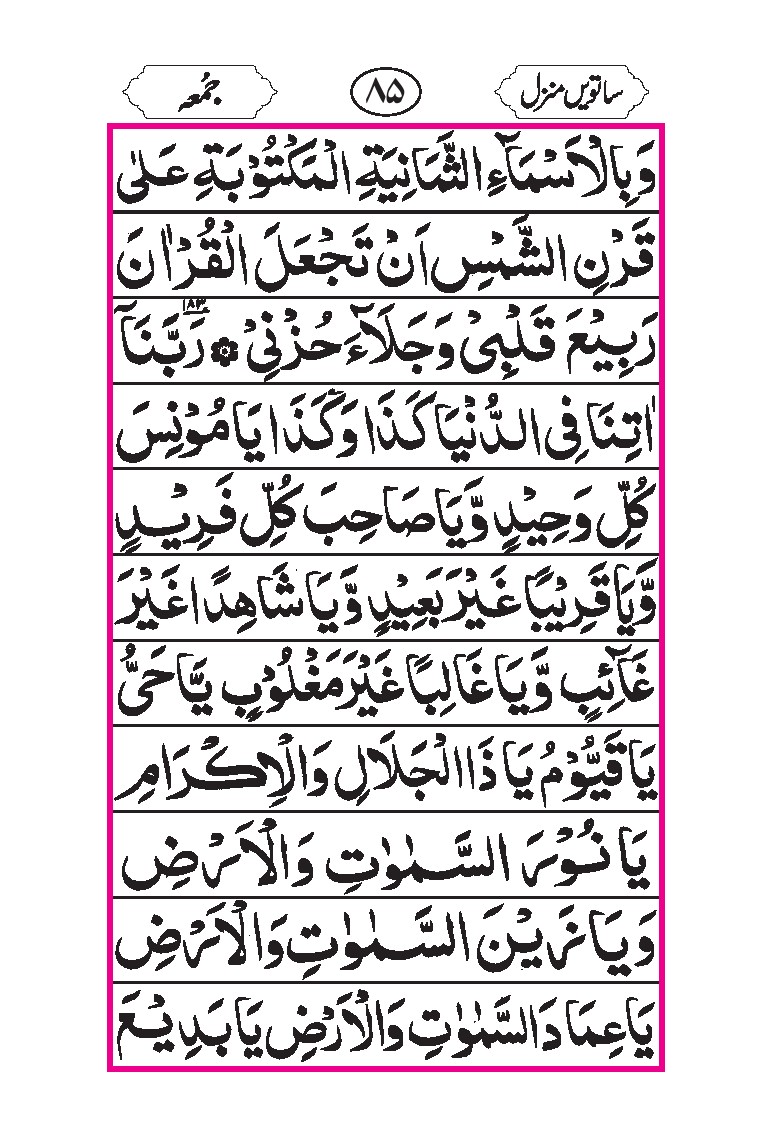 ساتویں منزل ۸۵ جُمعہ
وَبِالْاَسْمَآءِ الثَّمَانِيَةِ الْمَكْتُوْبَةِ عَلٰى
قَرْنِ الشَّمْسِ اَنْ تَجْعَلَ الْقُرْاٰنَ
رَبِيْعَ قَلْبِيْ وَجَلَآءَ حُزْنِيْ ۞ ۱۸۳ رَبَّنَآ
اٰتِنَا فِي الدُّنْيَا كَذَا وَكَذَا يَا مُوْنِسَ
كُلِّ وَحِيْدٍ وَّيَا صَاحِبَ كُلِّ فَرِيْدٍ
وَّيَا قَرِيْبًا غَيْرَ بَعِيْدٍ وَّيَا شَاهِدًا غَيْرَ
غَآئِبٍ وَّيَا غَالِبًا غَيْرَ مَغْلُوْبٍ يَّا حَيُّ
يَا قَيُّوْمُ يَا ذَا الْجَلَالِ وَالْاِكْرَامِ
يَا نُوْرَ السَّمٰوٰتِ وَالْاَرْضِ
وَيَا زَيْنَ السَّمٰوٰتِ وَالْاَرْضِ
يَا عِمَادَ السَّمٰوٰتِ وَالْاَرْضِ يَا بَدِيْعَ